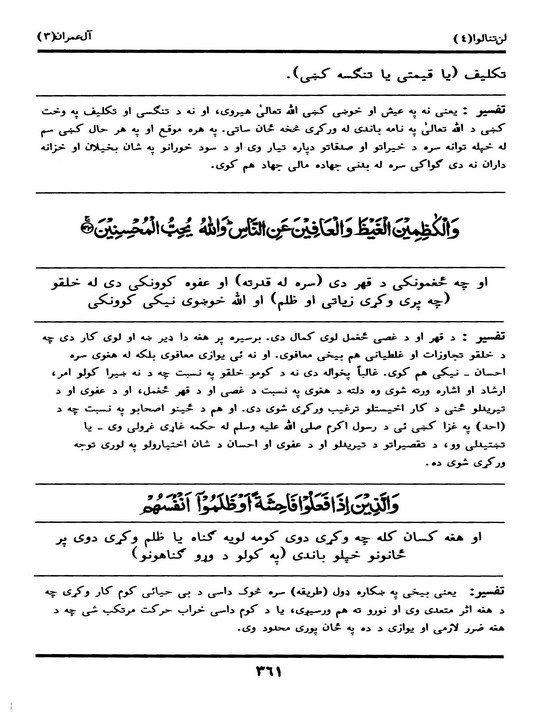 لن تنالوا (٤)
آل عمران (٣)
تکلیف (یا قیمتی یا تنګسه کښی).
تفسیر : یعنی نه په عیش او خوښی کښی الله تعالیٰ هیروی، او نه د تنګسی او تکلیف په وخت
کښی د الله تعالیٰ په نامه باندی له ورکړی څخه ځان ساتی. په هره موقع او په هر حال کښی سم
له خپله توانه سره د خیراتو او صدقاتو دپاره تیار وی او د سود خورانو په شان بخیلان او خزانه
داران نه دی ګواکی سره له بدنی جهاده مالی جهاد هم کوی.
وَالْكٰظِمِيْنَ الْغَيْظَ وَالْعَافِيْنَ عَنِ النَّاسِ ۗ وَاللّٰهُ يُحِبُّ الْمُحْسِنِيْنَ ﴿۱۳۴﴾
او چه څغمونکی د قهر دی (سره له قدرته) او عفوه کوونکی دی له خلقو
(چه پری وکړی زیاتی او ظلم) او الله خوښوی نیکی کوونکی
تفسیر : د قهر او د غصی څغمل لوی کمال دی. برسیره پر هغه دا ډیر ښه او لوی کار دی چه
د خلقو تجاوزات او غلطیانی هم بیخی معافوی. او نه ئی یوازی معافوی بلکه له هغوی سره
احسان ـ نیکی هم کوی. غالباً پخواله دی نه د کومو خلقو په نسبت چه د نه ښیرا کولو امر،
ارشاد او اشاره ورته شوی وه دلته د هغوی په نسبت د غصی او د قهر څغمل، او د عفوی او د
تیریدلو ځنی د کار اخیستلو ترغیب ورکړی شوی دی. او هم د ځینو اصحابو په نسبت چه د
(احد) په غزا کښی ئی د رسول اکرم صلی الله علیه وسلم له حکمه غاړی غړولی وی ـ یا
تښتیدلی وو، د تقصیراتو د تیریدلو او د عفوی او احسان د شان اختیارولو په لوری توجه
ورکړی شوی ده.
وَالَّذِيْنَ اِذَا فَعَلُوْا فَاحِشَةً اَوْ ظَلَمُوْٓا اَنْفُسَهُمْ
او هغه کسان کله چه وکړی دوی کومه لویه ګناه یا ظلم وکړی دوی پر
ځانونو خپلو باندی (په کولو د وړو ګناهونو)
تفسیر: یعنی بیخی په ښکاره ډول (طریقه) سره څوک داسی د بی حیائی کوم کار وکړی چه
د هغه اثر متعدی وی او نورو ته هم ورسیږی، یا د کوم داسی خراب حرکت مرتکب شی چه د
هغه ضرر لازمی او یوازی د ده په ځان پوری محدود وی.
٣٦١